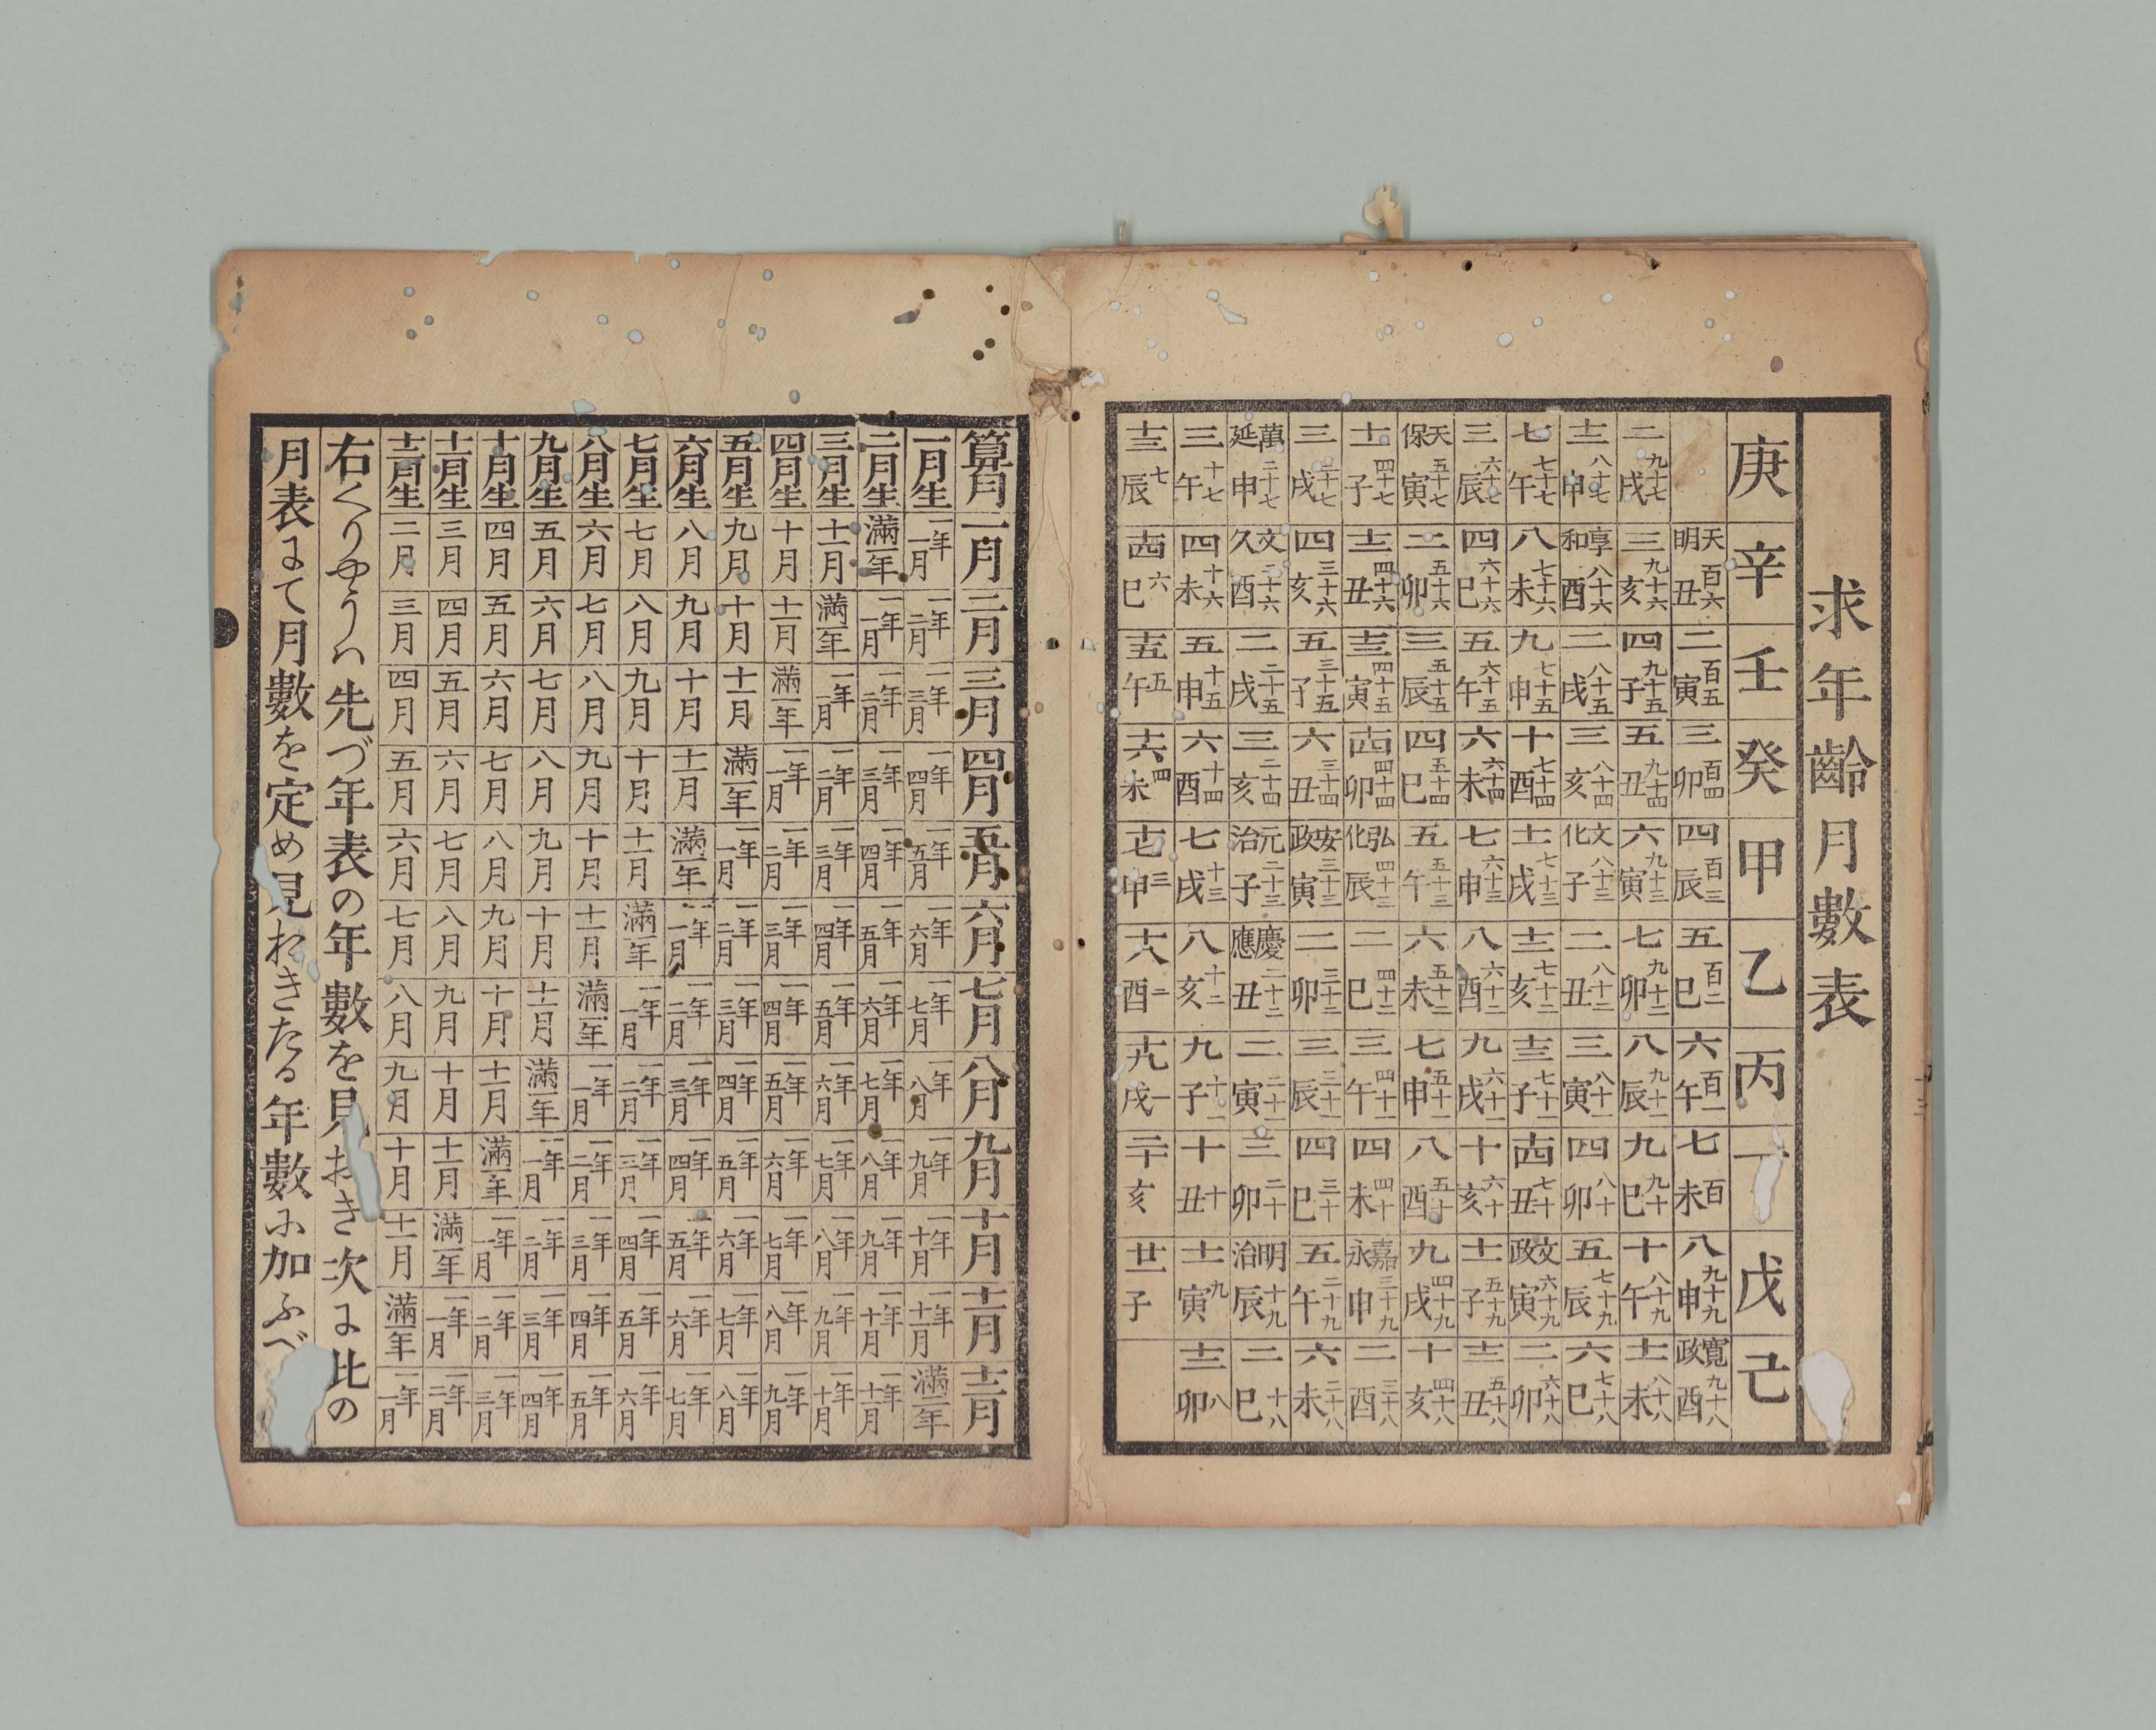 求年齡月數表
庚 辛 壬 癸 甲 乙 丙 丁 戊 己
天明百六丑 二百五寅 三百四卯 四百三辰 五百二巳 六百一午 七百未 八九十九申 寛政九十八酉
二九十七戌 三九十六亥 四九十五子 五九十四丑 六九十三寅 七九十二卯 八九十一辰 九九十巳 十八十九午 十一八十八未
十二八十七申 享和八十六酉 二八十五戌 三八十四亥 文化八十三子 二八十二丑 三八十一寅 四八十卯 五七十九辰 六七十八巳
七七十七午 八七十六未 九七十五申 十七十四酉 十一七十三戌 十二七十二亥 十三七十一子 十四七十丑 文政六十九寅 二六十八卯
三六十七辰 四六十六巳 五六十五午 六六十四未 七六十三申 八六十二酉 九六十一戌 十六十亥 十一五十九子 十二五十八丑
天保五十七寅 二五十六卯 三五十五辰 四五十四巳 五五十三午 六五十二未 七五十一申 八五十酉 九四十九戌 十四十八亥
十一四十七子 十二四十六丑 十三四十五寅 十四四十四卯 弘化四十三辰 二四十二巳 三四十一午 四四十未 嘉永三十九申 二三十八酉
三三十七戌 四三十六亥 五三十五子 六三十四丑 安政三十三寅 二三十二卯 三三十一辰 四三十巳 五二十九午 六二十八未
萬延二十七申 文久二十六酉 二二十五戌 三二十四亥 元治二十三子 慶應二十二丑 二二十一寅 三二十卯 明治十九辰 二十八巳
三十七午 四十六未 五十五申 六十四酉 七十三戌 八十二亥 九十一子 十十丑 十一九寅 十二八卯
十三七辰 十四六巳 十五五午 十六四未 十七三申 十八二酉 十九一戌 二十亥 廿一子
算月 一月 二月 三月 四月 五月 六月 七月 八月 九月 十月 十一月 十二月
一月生 一年一月 一年二月 一年三月 一年四月 一年五月 一年六月 一年七月 一年八月 一年九月 一年十月 一年十一月 滿二年
二月生 滿一年 一年一月 一年二月 一年三月 一年四月 一年五月 一年六月 一年七月 一年八月 一年九月 一年十月 一年十一月
三月生 十一月 滿一年 一年一月 一年二月 一年三月 一年四月 一年五月 一年六月 一年七月 一年八月 一年九月 一年十月
四月生 十月 十一月 滿一年 一年一月 一年二月 一年三月 一年四月 一年五月 一年六月 一年七月 一年八月 一年九月
五月生 九月 十月 十一月 滿一年 一年一月 一年二月 一年三月 一年四月 一年五月 一年六月 一年七月 一年八月
六月生 八月 九月 十月 十一月 滿一年 一年一月 一年二月 一年三月 一年四月 一年五月 一年六月 一年七月
七月生 七月 八月 九月 十月 十一月 滿一年 一年一月 一年二月 一年三月 一年四月 一年五月 一年六月
八月生 六月 七月 八月 九月 十月 十一月 滿一年 一年一月 一年二月 一年三月 一年四月 一年五月
九月生 五月 六月 七月 八月 九月 十月 十一月 滿一年 一年一月 一年二月 一年三月 一年四月
十月生 四月 五月 六月 七月 八月 九月 十月 十一月 滿一年 一年一月 一年二月 一年三月
十一月生 三月 四月 五月 六月 七月 八月 九月 十月 十一月 滿一年 一年一月 一年二月
十二月生 二月 三月 四月 五月 六月 七月 八月 九月 十月 十一月 滿一年 一年一月
右くりやうハ先づ年表の年數を見おき次に此の
月表にて月數を定め見おきたる年數に加ふべ